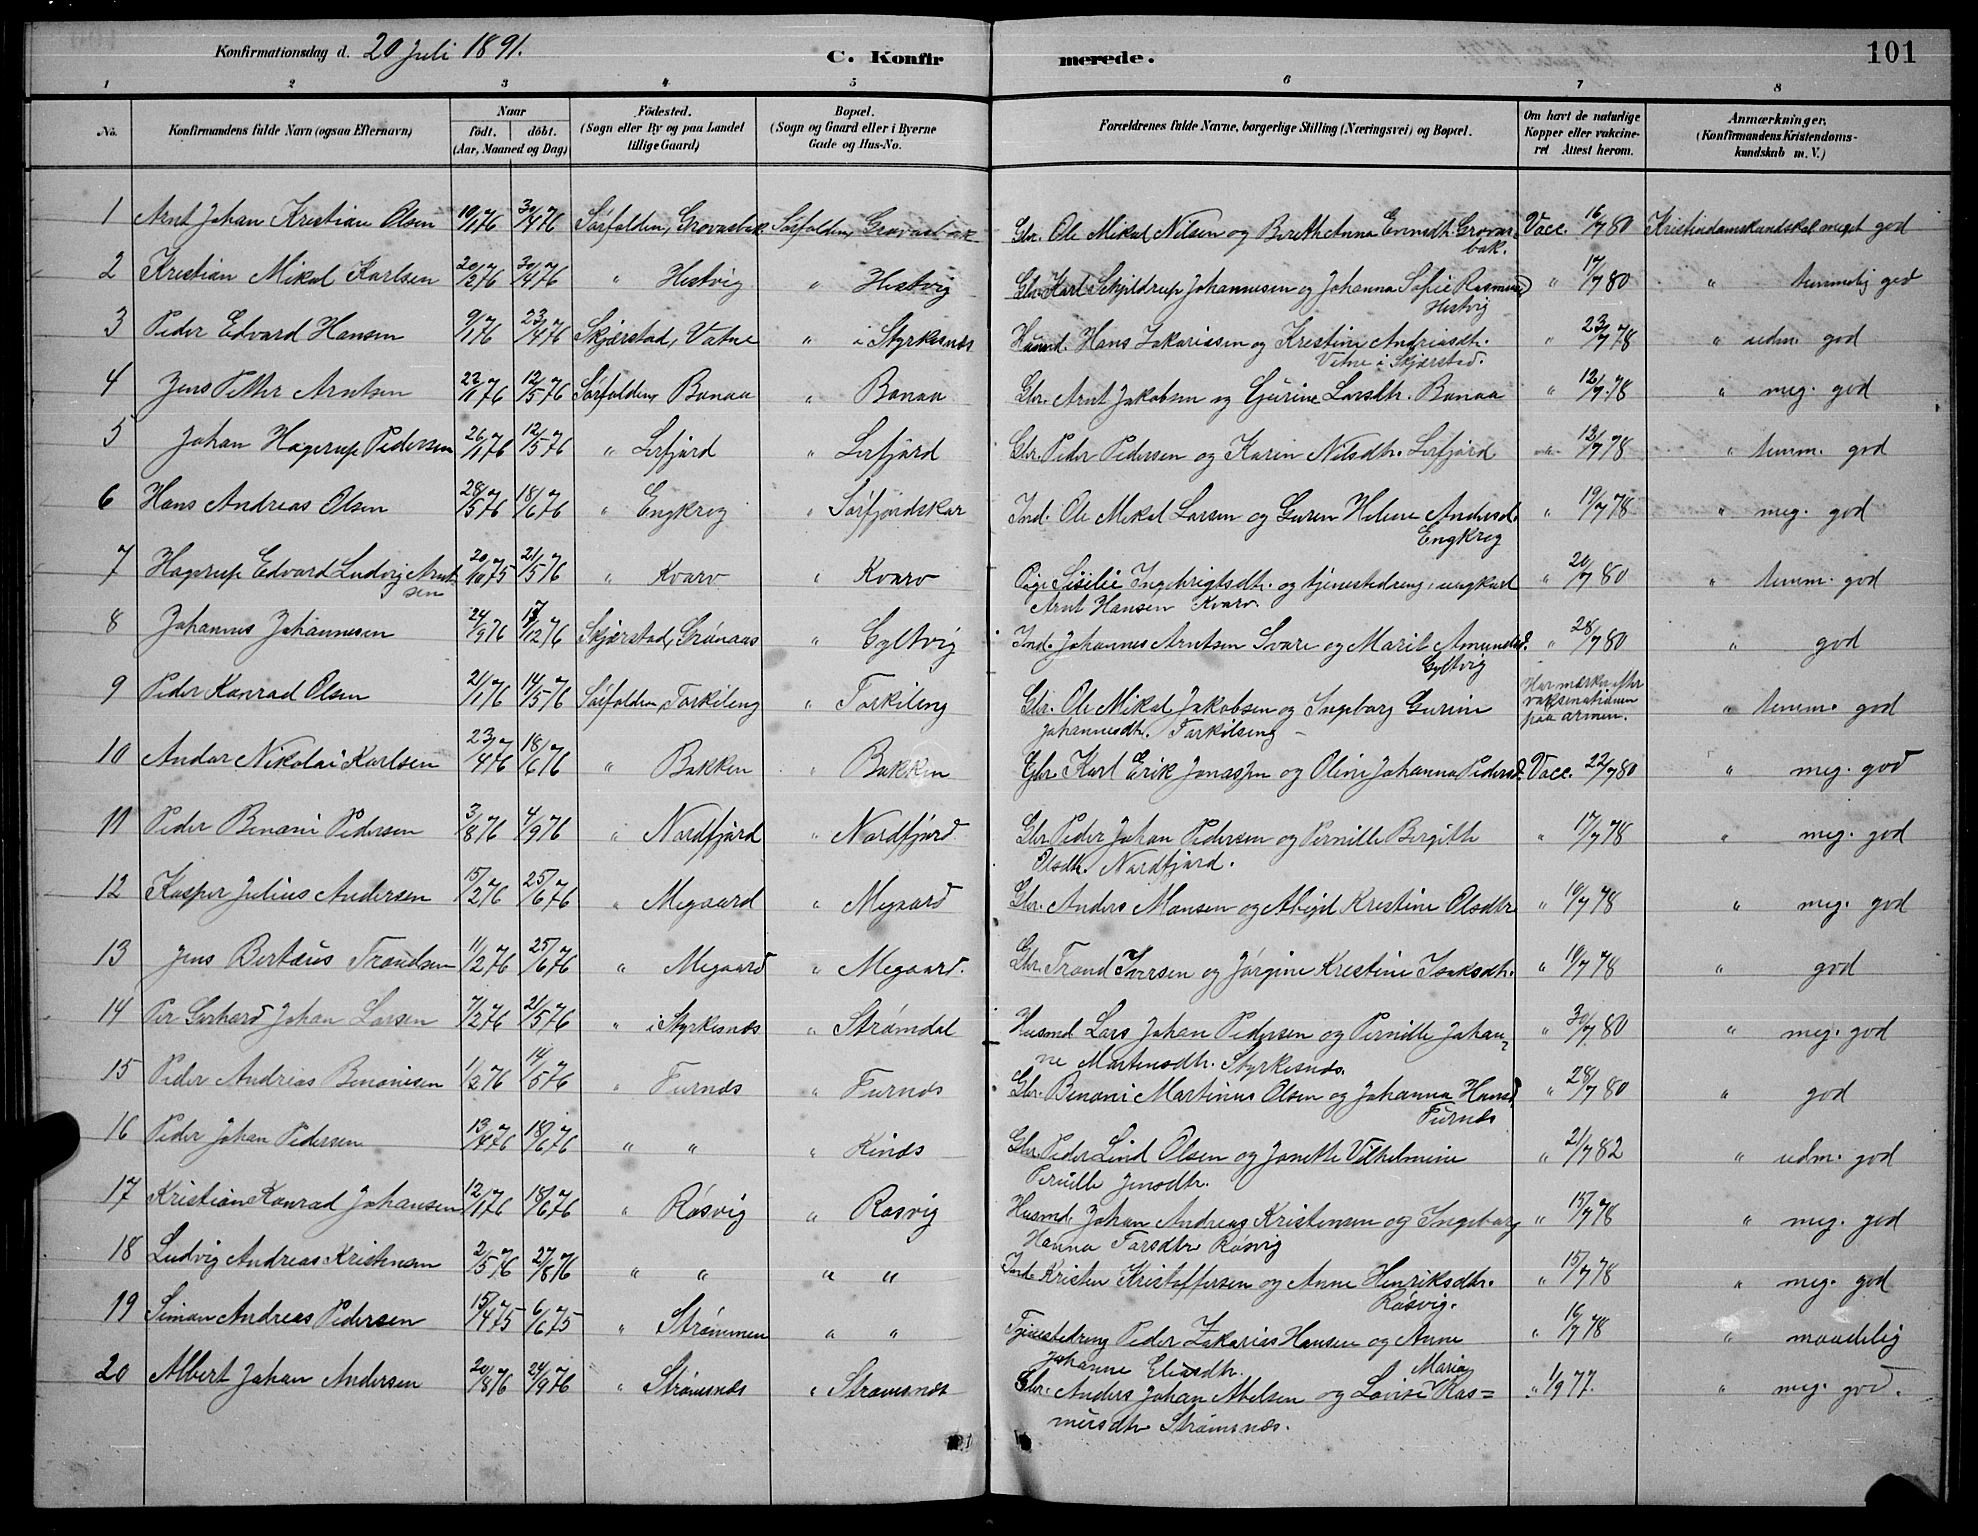 Konfirmationsdag d. 20 Juli 1891.
C. Konfirmerede.
101
1 2 3 4 5 6 7 8
No.
Konfirmandens fulde Navn (ogsaa Efternavn)
Naar
födt. döbt.
(Aar, Maaned og Dag)
Födested.
(Sogn eller By og paa Landet
tillige Gaard)
Bopæl.
(Sogn og Gaard eller i Byerne
Gade og Hus-No.
Forældrenes fulde Navne, borgerlige Stilling (Næringsvei) og Bopæl.
Om havt de naturlige
Kopper eller vakcine-
ret Attest herom.
Anmærkninger.
(Konfirmandens Kristendoms-
kundskab m. V.)
1 Arnt Johan Kristian Olsen 10/1 76 30/4 76 Sørfolden, Grovasbak Sørfolden, Grovasbak Gbr. Ole Mikal Nilsen og Berethanna Evensdtr. Grovas- Vacc. 16/7 80 Kristendomskundskab meget god
bak.
2 Kristian Mikal Karlsen 20/2 76 30/4 76 " Hestvig " Hestvig Gbr. Karl Schjeldrup Johannesen og Johanna Sofie Rasmusd " 17/7 80 " temmelig god
Hestvig
3 Peder Edvard Hansen 9/1 76 23/4 76 Skjærstad, Vatne " i Styrkesnæs Husmd. Hans Zakariassen og Kristine Andreasdtr. " 23/7 78 " udm. god
Vatne i Skjærstad.
4 Jens Petter Arntsen 22/1 76 12/5 76 Sørfolden, Bonaa " Bonaa Gbr. Arnt Jakobsen og Gjurine Larsdtr. Bonaa " 12/7 78 " meg. god
5 Johan Hagerup Pedersen 26/1 76 12/5 76 " Lerfjord " Lerfjord Gbr. Peder Pedersen og Karin Nilsdtr. Lerfjord " 12/7 78 " temm. god
6 Hans Andreas Olsen 28/5 76 18/6 76 " Engkrog " Sørfjordskar Ind. Ole Mikal Larsen og Guren Helene Andersd. " 19/7 78 " meg. god
Engkrog
7 Hagerup Edvard Ludvig Arnt- 20/10 75 21/5 76 " Kvarv " Kvarv Pige Sisilie Ingebrigtsdtr. og tjenestedreng, ungkarl " 20/7 80 " temm. god
sen Arnt Hansen Kvarv.
8 Johannes Johannesen 24/9 76 17/12 76 Skjærstad, Grønaas " Gyltvig Ind. Johannes Arntsen Svare og Marit Amundsd. " 28/7 80 " god
Gyltvig
9 Peder Konrad Olsen 21/1 76 14/5 76 Sørfolden, Torkileng " Torkileng Gbr. Ole Mikal Jakobsen og Ingeborg Gurine Har mærker efter " temm. god
Johannesdtr. Torkilseng vaksinationen
paa armen.
10 Andor Nikolai Karlsen 23/4 76 18/6 76 " Bakken " Bakken Gbr. Karl Erik Jonassen og Oline Johanna Pedersd. Vacc. 22/7 80 " meg. god
11 Peder Benoni Pedersen 3/8 76 4/9 76 " Nordfjord " Nordfjord Gbr. Peder Johan Pedersen og Pernille Birgitte " 17/7 78 " meg. god
Olsdtr. Nordfjord.
12 Kasper Julius Andersen 15/2 76 25/6 76 " Megaard " Megaard Gbr. Anders Monsen og Abigel Kristine Olsdtr " 10/7 78 " meg. god
13 Jens Bertæus Trondsen 11/2 76 25/6 76 " Megaard " Megaard. Gbr. Trond Iversen og Jørgine Kristine Isaksdtr. " 10/7 78 " god
14 Per Gerhard Johan Larsen 7/2 76 21/5 76 " i Styrkesnæs " Strømdal Husmd Lars Johan Pedersen og Pernille Johan- " 30/7 80 " meg. god
ne Martensdtr. Styrkesnæs.
15 Peder Andreas Benonisen 1/2 76 14/5 76 " Furnæs " Furnæs Gbr. Benoni Martinus Olsen og Johanna Hansd " 28/7 80 " god
Furnæs
16 Peder Johan Pedersen 13/4 76 18/6 76 " " " Kinæs Gbr. Peder Lind Olsen og Janette Vilhelmine " 21/7 82 " udm. god
Pernille Jensdtr.
17 Kristian Konrad Johansen 12/1 76 18/6 76 " Røsvig " Røsvig Husmd. Johan Andreas Kristensen og Ingeborg " 15/7 78 " meg. god
Hanna Tarsdtr Røsvig
18 Ludvig Andreas Kristensen 2/5 76 27/8 76 " " " " Ind. Kristen Kristoffersen og Anne Henriksdtr. " 15/7 78 " meg. god
Røsvig.
19 Simon Andreas Pedersen 15/4 75 6/6 75 " Strømmen " " Tjenestedreng Peder Zakarias Hansen og Anne " 16/7 78 " maadelig
Johanne Eliasdtr.
20 Albert Johan Andersen 20/8 76 24/9 76 " Strømsnæs " Strømsnæs Gbr. Anders Johan Abelsen og Lovise Maria Ras= " 1/9 77. " meg. god.
musdtr Strømsnæs.